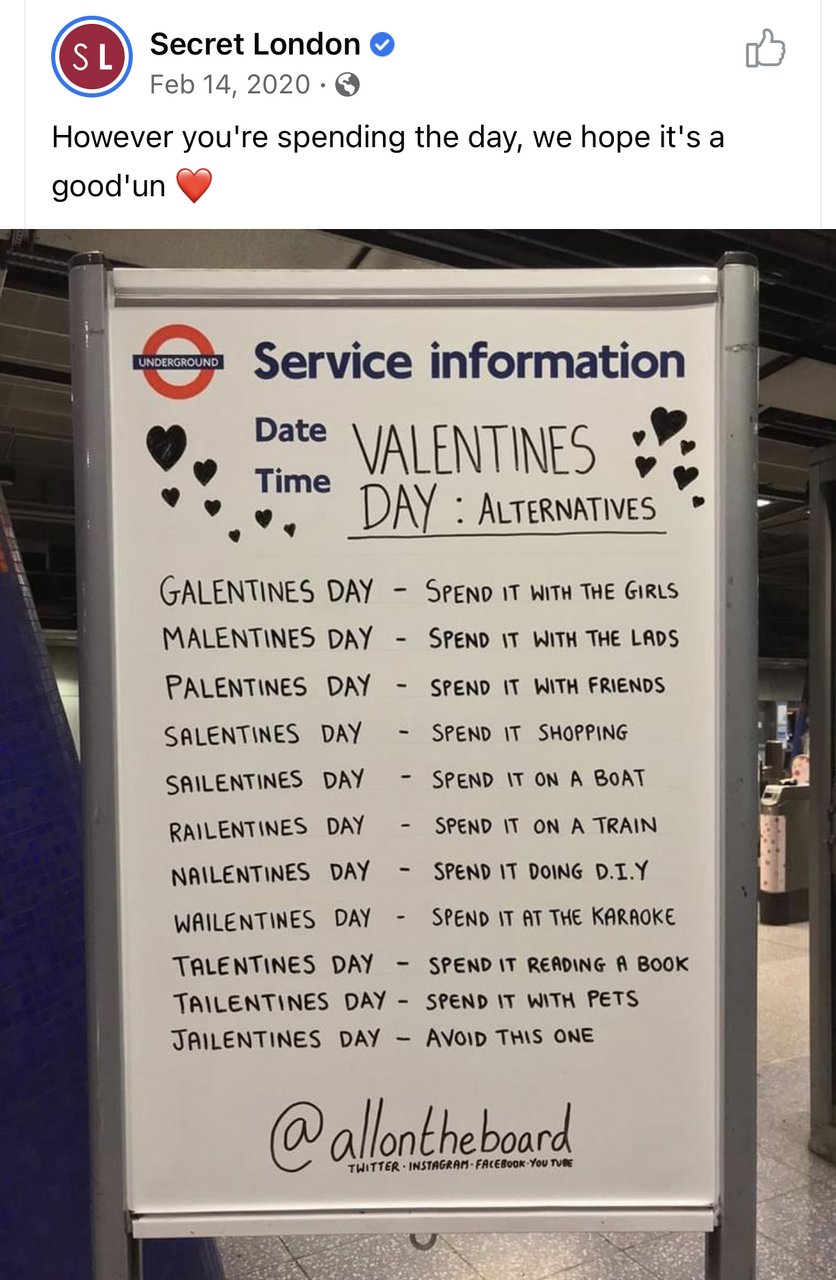 SL
Secret London
Feb 14, 2020 ·
However you're spending the day, we hope it's a
good'un ❤️
UNDERGROUND
Service information
Date
Time
VALENTINES
DAY : ALTERNATIVES
GALENTINES DAY - SPEND IT WITH THE GIRLS
MALENTINES DAY - SPEND IT WITH THE LADS
PALENTINES DAY - SPEND IT WITH FRIENDS
SALENTINES DAY - SPEND IT SHOPPING
SAILENTINES DAY - SPEND IT ON A BOAT
RAILENTINES DAY - SPEND IT ON A TRAIN
NAILENTINES DAY - SPEND IT DOING D.I.Y
WAILENTINES DAY - SPEND IT AT THE KARAOKE
TALENTINES DAY - SPEND IT READING A BOOK
TAILENTINES DAY - SPEND IT WITH PETS
JAILENTINES DAY - AVOID THIS ONE
@allontheboard
TWITTER · INSTAGRAM · FACEBOOK · YOU TUBE